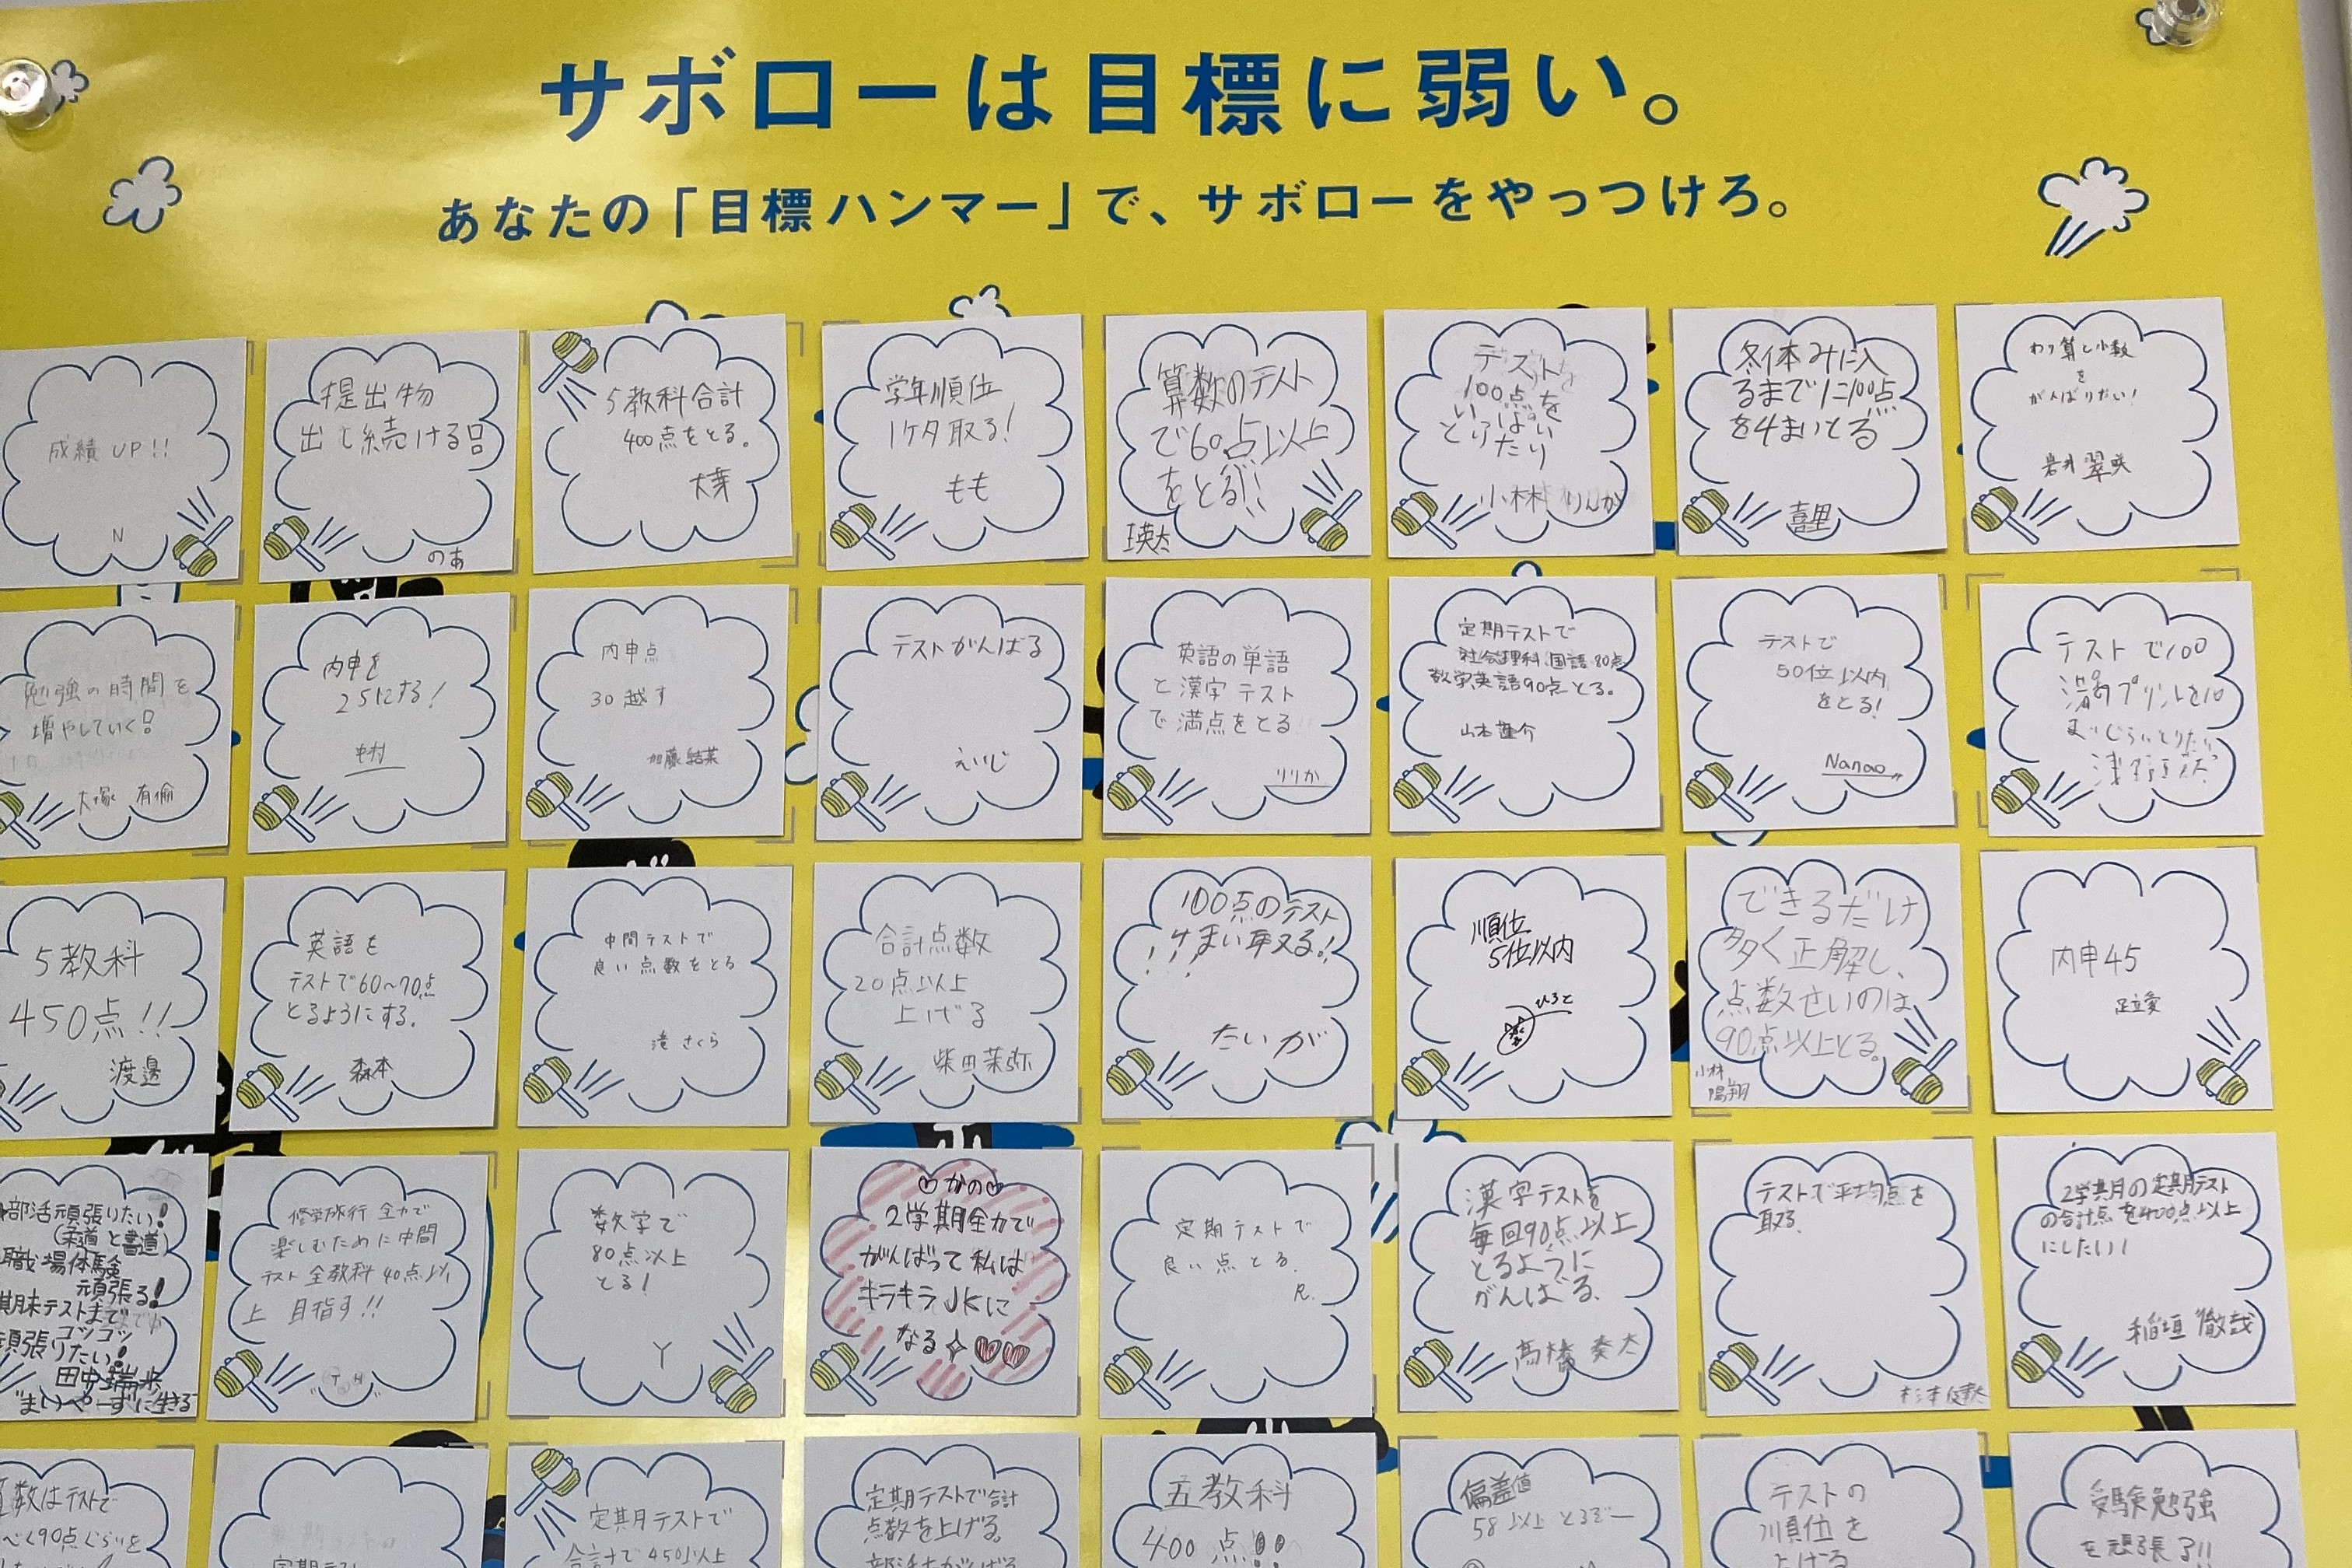 サボローは目標に弱い。
あなたの「目標ハンマー」で、サボローをやっつけろ。
成績UP!!
N
提出物
出し続ける!!
のあ
5教科合計
400点をとる。
大芽
学年順位
1ケタ取る!
もも
算数のテスト
で60点以上
をとる!!
瑛太
テスト
100点を
いっぱい
とりたい
小林 りんか
冬休みに入
るまでに100点
を4まいとる
喜里
わり算し小数
を
がんばりたい!
岩井 翠咲
勉強の時間を
増やしていく!!
大塚 有倫
内申を
25にする!
中村
内申点
30越す
加藤 結菜
テストがんばる
えいじ
英語の単語
と漢字テスト
で満点をとる
りりか
定期テストで
社会理科、国語80点
数学英語90点とる。
山本
テストで
50位以内
をとる!
Nanao
テストで100
満のプリントを10
まいじらいとりたい
5教科
450点!!
渡邉
英語を
テストで60~70点
とるようにする。
森本
中間テストで
良い点数をとる
滝 さくら
合計点数
20点以上
上げる
柴田茉弥
100点のテスト
!けまい取る!!
たいが
順位
5位以内
ひろと
できるだけ
多く正解し、
点数せいのは
90点以上とる。
小林
陽翔
内申45
足立愛
部活頑張りたい!
(柔道と書道)
職場体験
頑張る!
期末テストまで
コツコツ
頑張りたい!
田中瑞歩
"まいぺーずに生きる
修学旅行 全力で
楽しむために中間
テスト全教科40点以
上 目指す!!
"T H"
数学で
80点以上
とる!
Y
かの
2学期全力で
がんばって私は
キラキラJKに
なる
定期テストで
良い点とる.
R.
漢字テストを
毎回90点以上
とるように
がんばる.
髙橋 奏太
テストで平均点を
取る.
杉本
2学期の定期テスト
の合計点を400点以上
にしたい!
稲垣 徹哉
数はテストで
べく90点ぐらいを
定期テスト
定期テストで
合計で450以上
定期テストで合計
点数を上げる。
部活もがんばる
五教科
400点!!
偏差値
58以上とるぞー
テストの
順位を
上げる
受験勉強
を頑張る!!